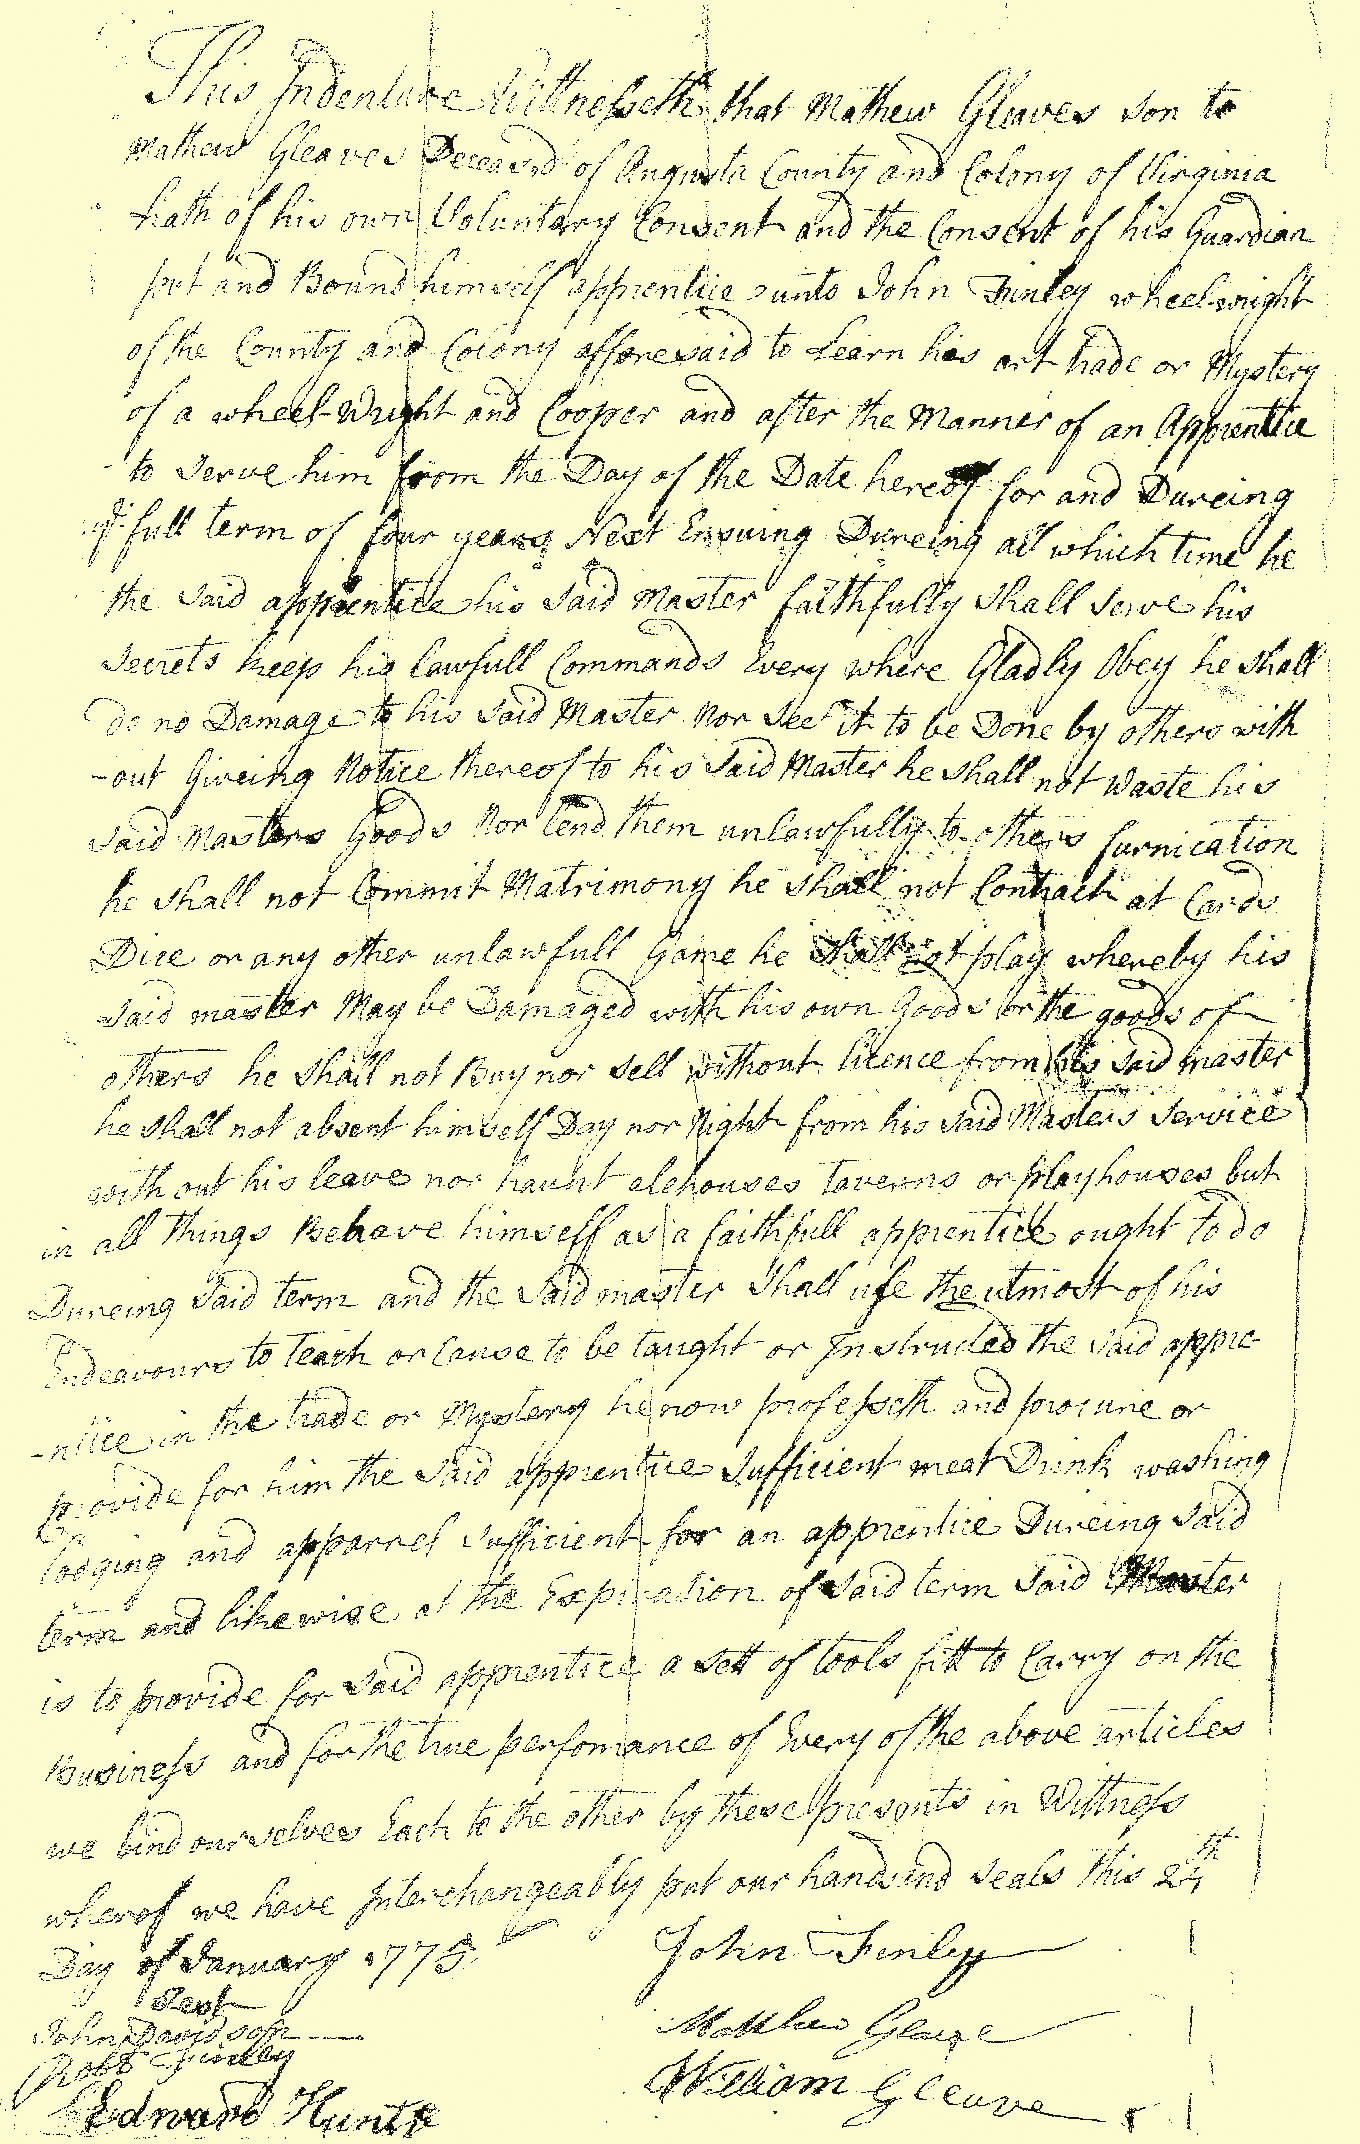 This Indenture Wittnesseth that Mathew Gleaves son to
Mathew Gleaves Deceasd of Augusta County and Colony of Virginia
hath of his own Voluntary Consent and the Consent of his Guardian
put and Bound himself apprentice unto John Finley wheelwright
of the County and Colony afforesaid to Learn his art trade or Mystery
of a wheel-Wright and Cooper and after the Manner of an Apprentice
to serve him from the Day of the Date hereof for and Dureing
ye full term of four years Next Ensuing Dureing all which time he
the said apprentice his said Master faithfully shall serve his
secrets keep his lawfull Commands Every where Gladly Obey he shall
do no Damage to his said Master Nor see it to be Done by others with
-out Giveing Notice thereof to his said Master he shall not waste his
said Masters Goods Nor lend them unlawfully to others furnication
he shall not Commit Matrimony he shall not Contract at Cards
Dice or any other unlawfull Game he shall not play whereby his
said master May be Damaged with his own Goods or the goods of
others he shall not Buy nor sell without licence from his said master
he shall not absent himself Day nor Night from his said Masters service
with out his leave nor haunt alehouses taverns or playhouses but
in all things Behave himself as a faithfull apprentice ought to do
Dureing said term and the said master shall use the utmost of his
Endeavours to teach or Cause to be taught or Instructed the said appre-
-ntice in the trade or Mystery he now professeth and procure or
provide for him the said apprentice sufficient meat Drink washing
lodging and apparrel sufficient for an apprentice Dureing said
term and likewise at the Expiration of said term said Master
is to provide for said apprentice a sett of tools fitt to Carry on the
Business and for the true perfomance of Every of the above articles
we bind ourselves Each to the other by these presents in Wittness
wherof we have Interchangeably put our hands and seals this 24th
Day of January 1775
John Finley
Test
John Davidson
Matthew Gleave
Robt Finley
William Gleave
Edward Hunter